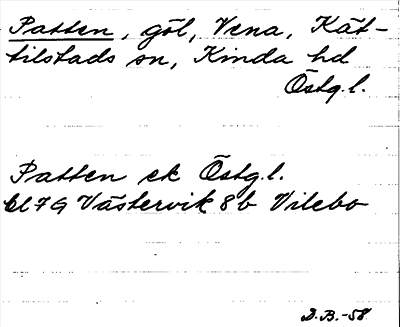 Patten, göl, Vena, Kät-
tilstads sn, Kinda hd
Östg.l.
Patten ek Östg.l.
bl 79 Västervik 8b Vilebo
D.B.-58